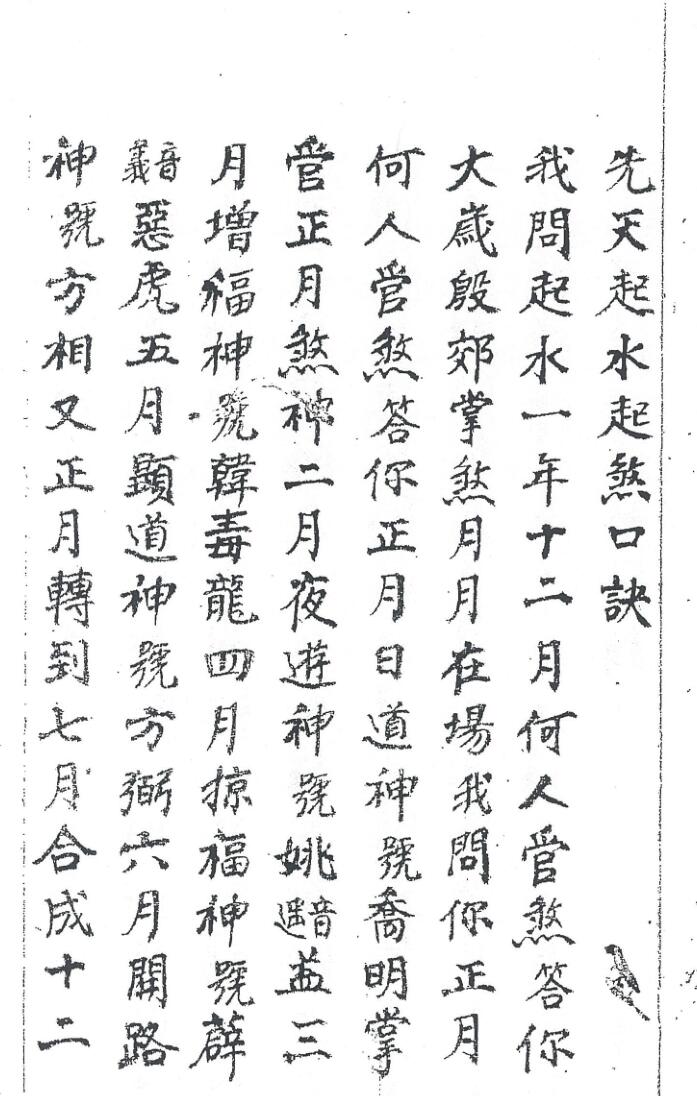 先天起水起煞口訣
我問起水一年十二月何人管煞答你
大歲殷郊掌煞月月在場我問你正月
何人管煞答你正月日道神號喬明掌
管正月煞神二月夜遊神號姚音遇益三
月增福神號韓毒龍四月掠福神號薜
音義惡虎五月顯道神號方弼六月開路
神號方相又正月轉到七月合成十二